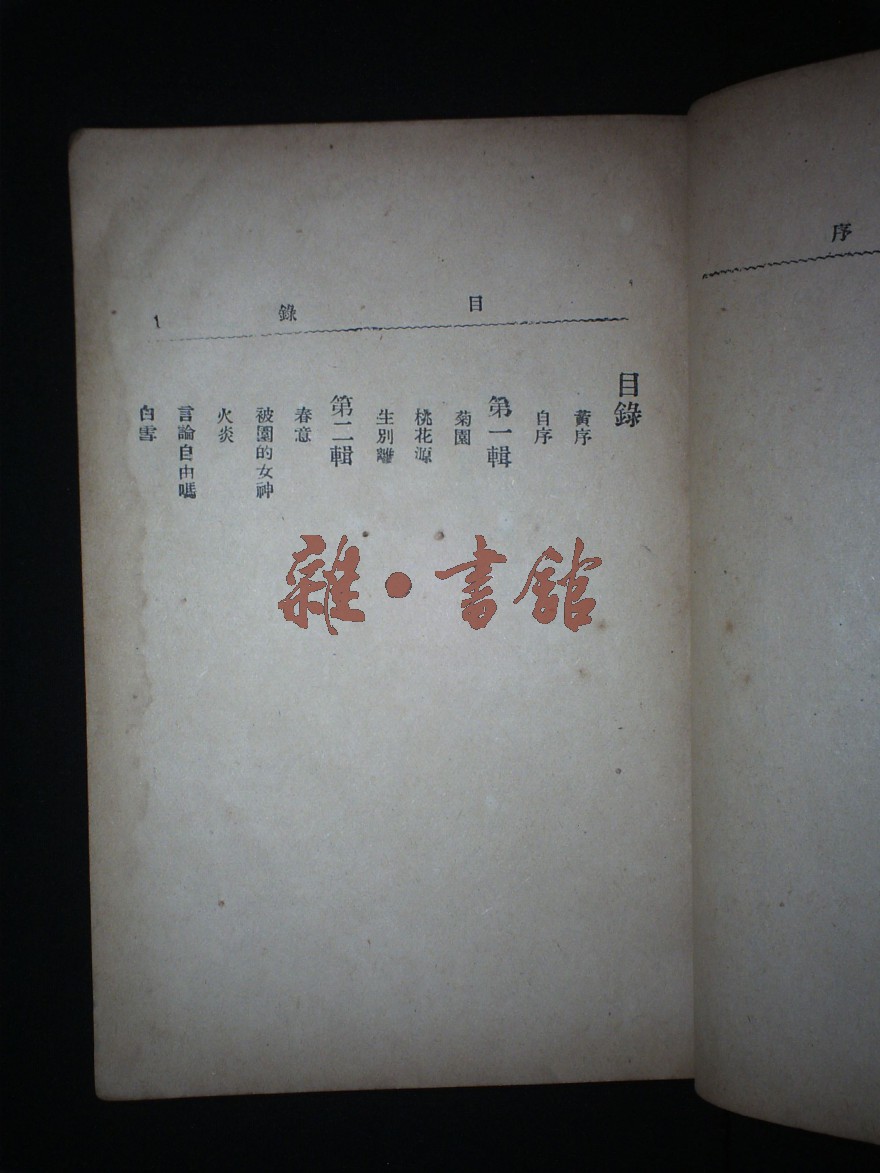 序
目錄 1
目錄
黃序
自序
第一輯
菊園
桃花源
生別離
第二輯
春意
被圍的女神
火炎
言論自由嗎
白雪
雜•書館